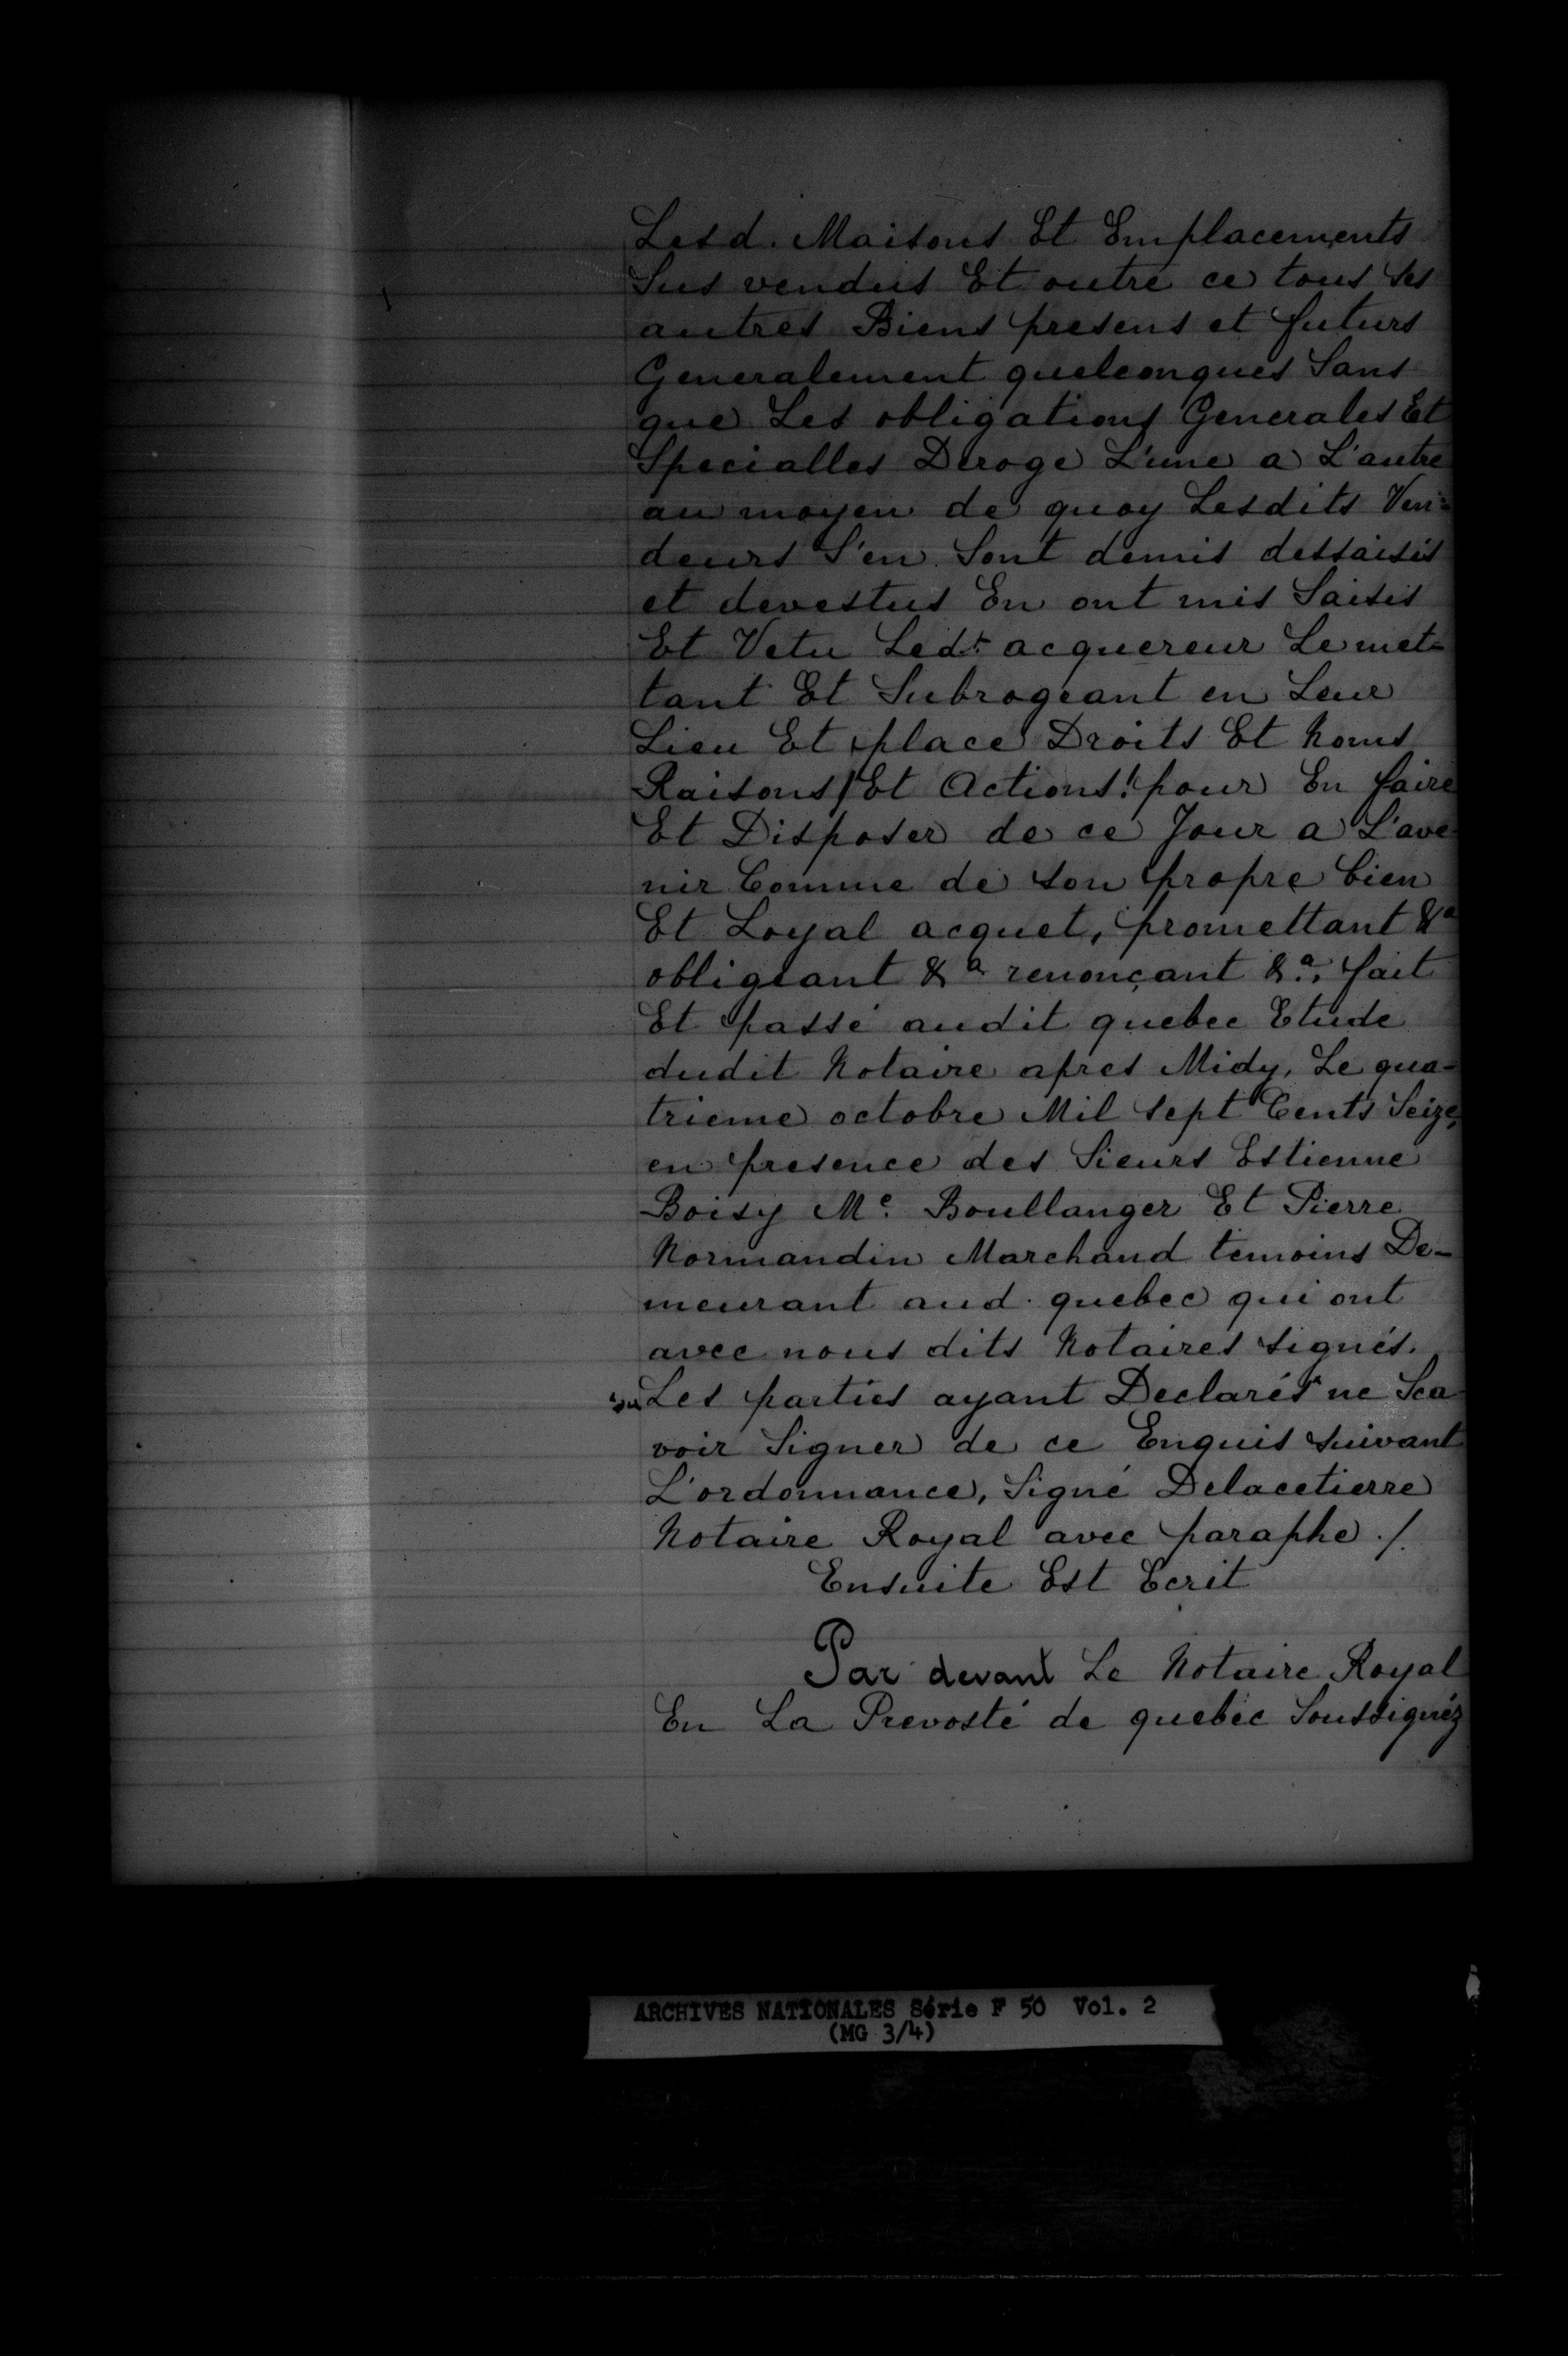 Lesd. Maisons Et Emplacements
Sus vendus Et outre ce tous ses
autres Biens presens et futurs
Generalement quelconques Sans
que Les obligations Generales Et
Specialles Deroge L'une a L'autre
au moyen de quoy Lesdits Ven=
deurs S'en Sont demis dessaisis
et devestus En ont mis Saisis
Et Vetu Ledt acquereur Le met=
tant Et Subrogeant en Leur
Lieu Et place Droits Et Noms
Raisons Et Actions pour En faire
Et Disposer de ce Jour a L'ave-
nir Comme de son propre bien
Et Loyal acquet, promettant &a
obligeant &a renonçant &a. fait
Et passé audit quebec Etude
dudit Notaire apres Midy, Le qua-
trieme octobre Mil Sept Cents Seize,
en presence des Sieurs Estienne
Boisy Me. Boullanger Et Pierre
Normandin Marchand temoins De-
meurant aud. quebec qui ont
avec nous dits Notaires signés.
Les parties ayant Declarés ne Sca
voir Signer de ce Enquis suivant
L'ordonnance, Signé Delacetierre
Notaire Royal avec paraphe ./.
Ensuite Est Ecrit
Par devant Le Notaire Royal
En La Prevosté de quebec Soussignéz
ARCHIVES NATIONALES Série F 50 Vol. 2
(MG 3/4)